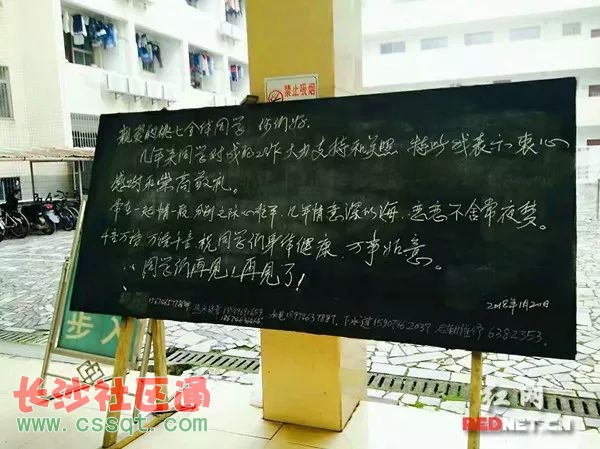 禁止吸烟
亲爱的俵七全体同学 你们好.
几年来同学对我的工作大力支持和关照 特此我表示衷心
感谢和崇高敬礼。
常在一起情一般 分别之际心难平, 几年情意深似海, 恋恋不舍常夜梦。
千言万语 万语千言 祝同学们身体健康, 万事如意。
同学们再见!再见了!
2018年1月20日
水电15974637887, 下水道15907462037 后勤维修 6382353.
步入
长沙社区通
www.cssqt.com
红网
REDNET.CN